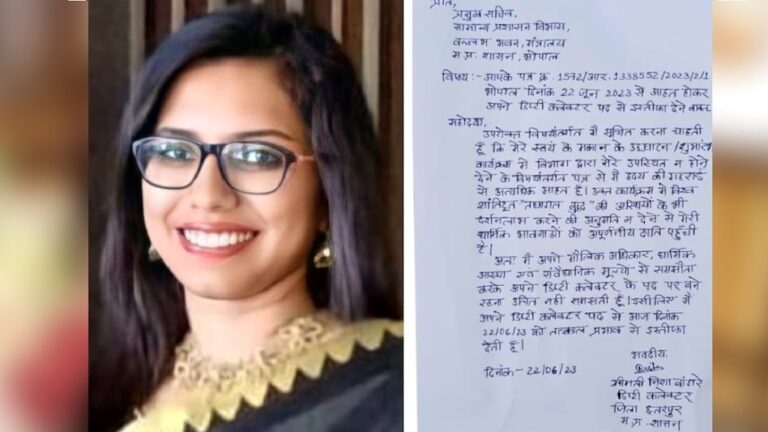 प्रति,
प्रमुख सचिव,
सामान्य प्रशासन विभाग,
वल्लभ भवन, मंत्रालय
म.प्र. शासन, भोपाल
विषय :- आपके पत्र क्र. 1572/आर. 1338552/2023/2/1
भोपाल दिनांक 22 जून 2023 से आहत होकर
अपने डिप्टी कलेक्टर पद से इस्तीफा देने बाबत
महोदया,
उपरोक्त विषयांतर्गत मैं सूचित करना चाहती
हूँ कि मेरे स्वयं के मकान के उद्घाटन/शुभारंभ
कार्यक्रम में विभाग द्वारा मेरे उपस्थित न होने
देने के विषयांतर्गत पत्र से मैं हृदय की गहराई
से अत्यधिक आहत हूँ। उक्त कार्यक्रम में विश्व
शांतिदूत "तथागत बुद्ध" की अस्थियों के भी
दर्शनलाभ करने की अनुमति न देने से मेरी
धार्मिक भावनाओं को अपूर्णनीय क्षति पहुँची
है।
अतः मैं अपने मौलिक अधिकार, धार्मिक
आस्था एवं संवैधानिक मूल्यों से समझौता
करके अपने डिप्टी कलेक्टर के पद पर बने
रहना उचित नहीं समझती हूँ। इसीलिए मैं
अपने डिप्टी कलेक्टर पद से आज दिनांक
22/06/23 को तत्काल प्रभाव से इस्तीफा
देती हूँ।
भवदीय
दिनांक - 22/06/23
श्रीमती निशा बांगरे
डिप्टी कलेक्टर
जिला छतरपुर
म.प्र. शासन